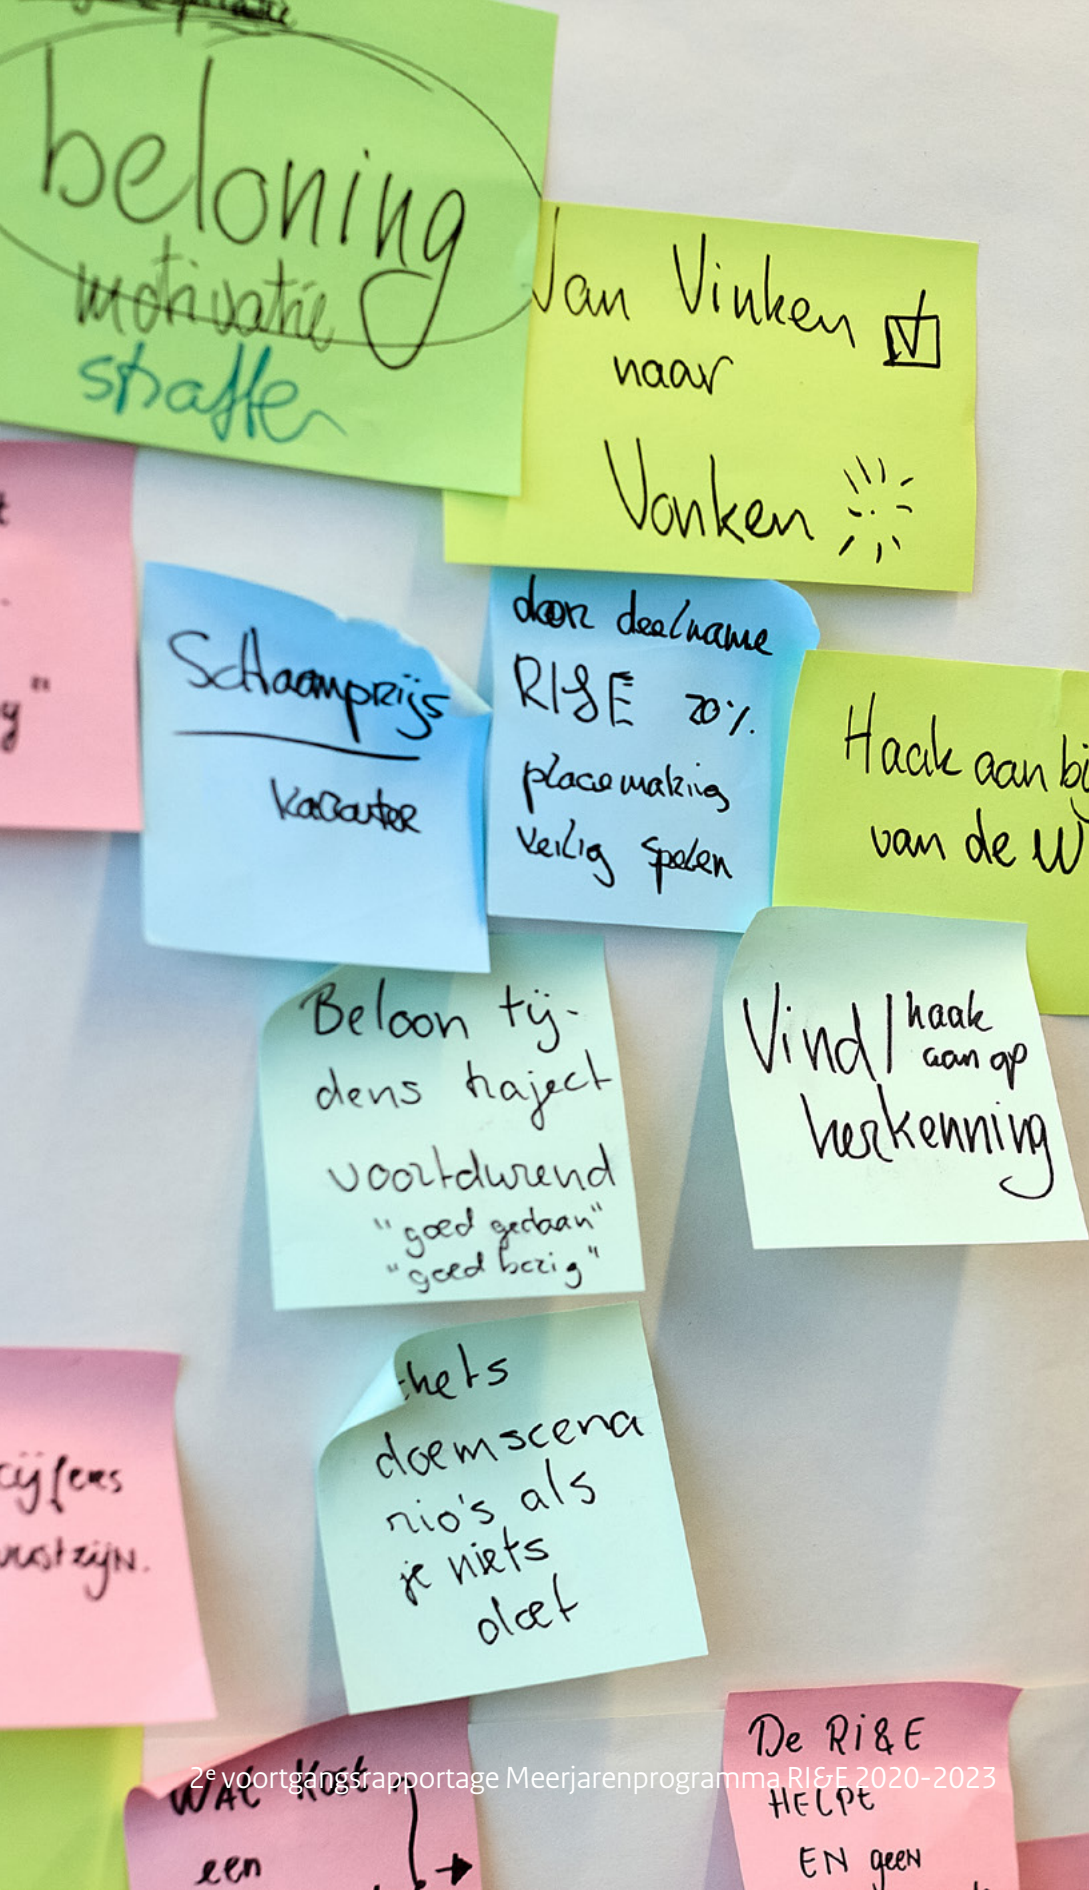 beloning
motivatie
straffen
Van Vinken
naar
Vonken
Schaamprijs
karakter
door deelname
RI&E 20%
placemaking
veilig spelen
Haak aan bij
van de W
Beloon tij-
dens traject
voortdurend
"goed gedaan"
"goed bezig"
Vind / haak
aan op
herkenning
chets
doemscena
rio's als
je niets
doet
cijfers
De RI&E
2e voortgangsrapportage Meerjarenprogramma RI&E 2020-2023
WAt kost
HELPt
een
EN geen